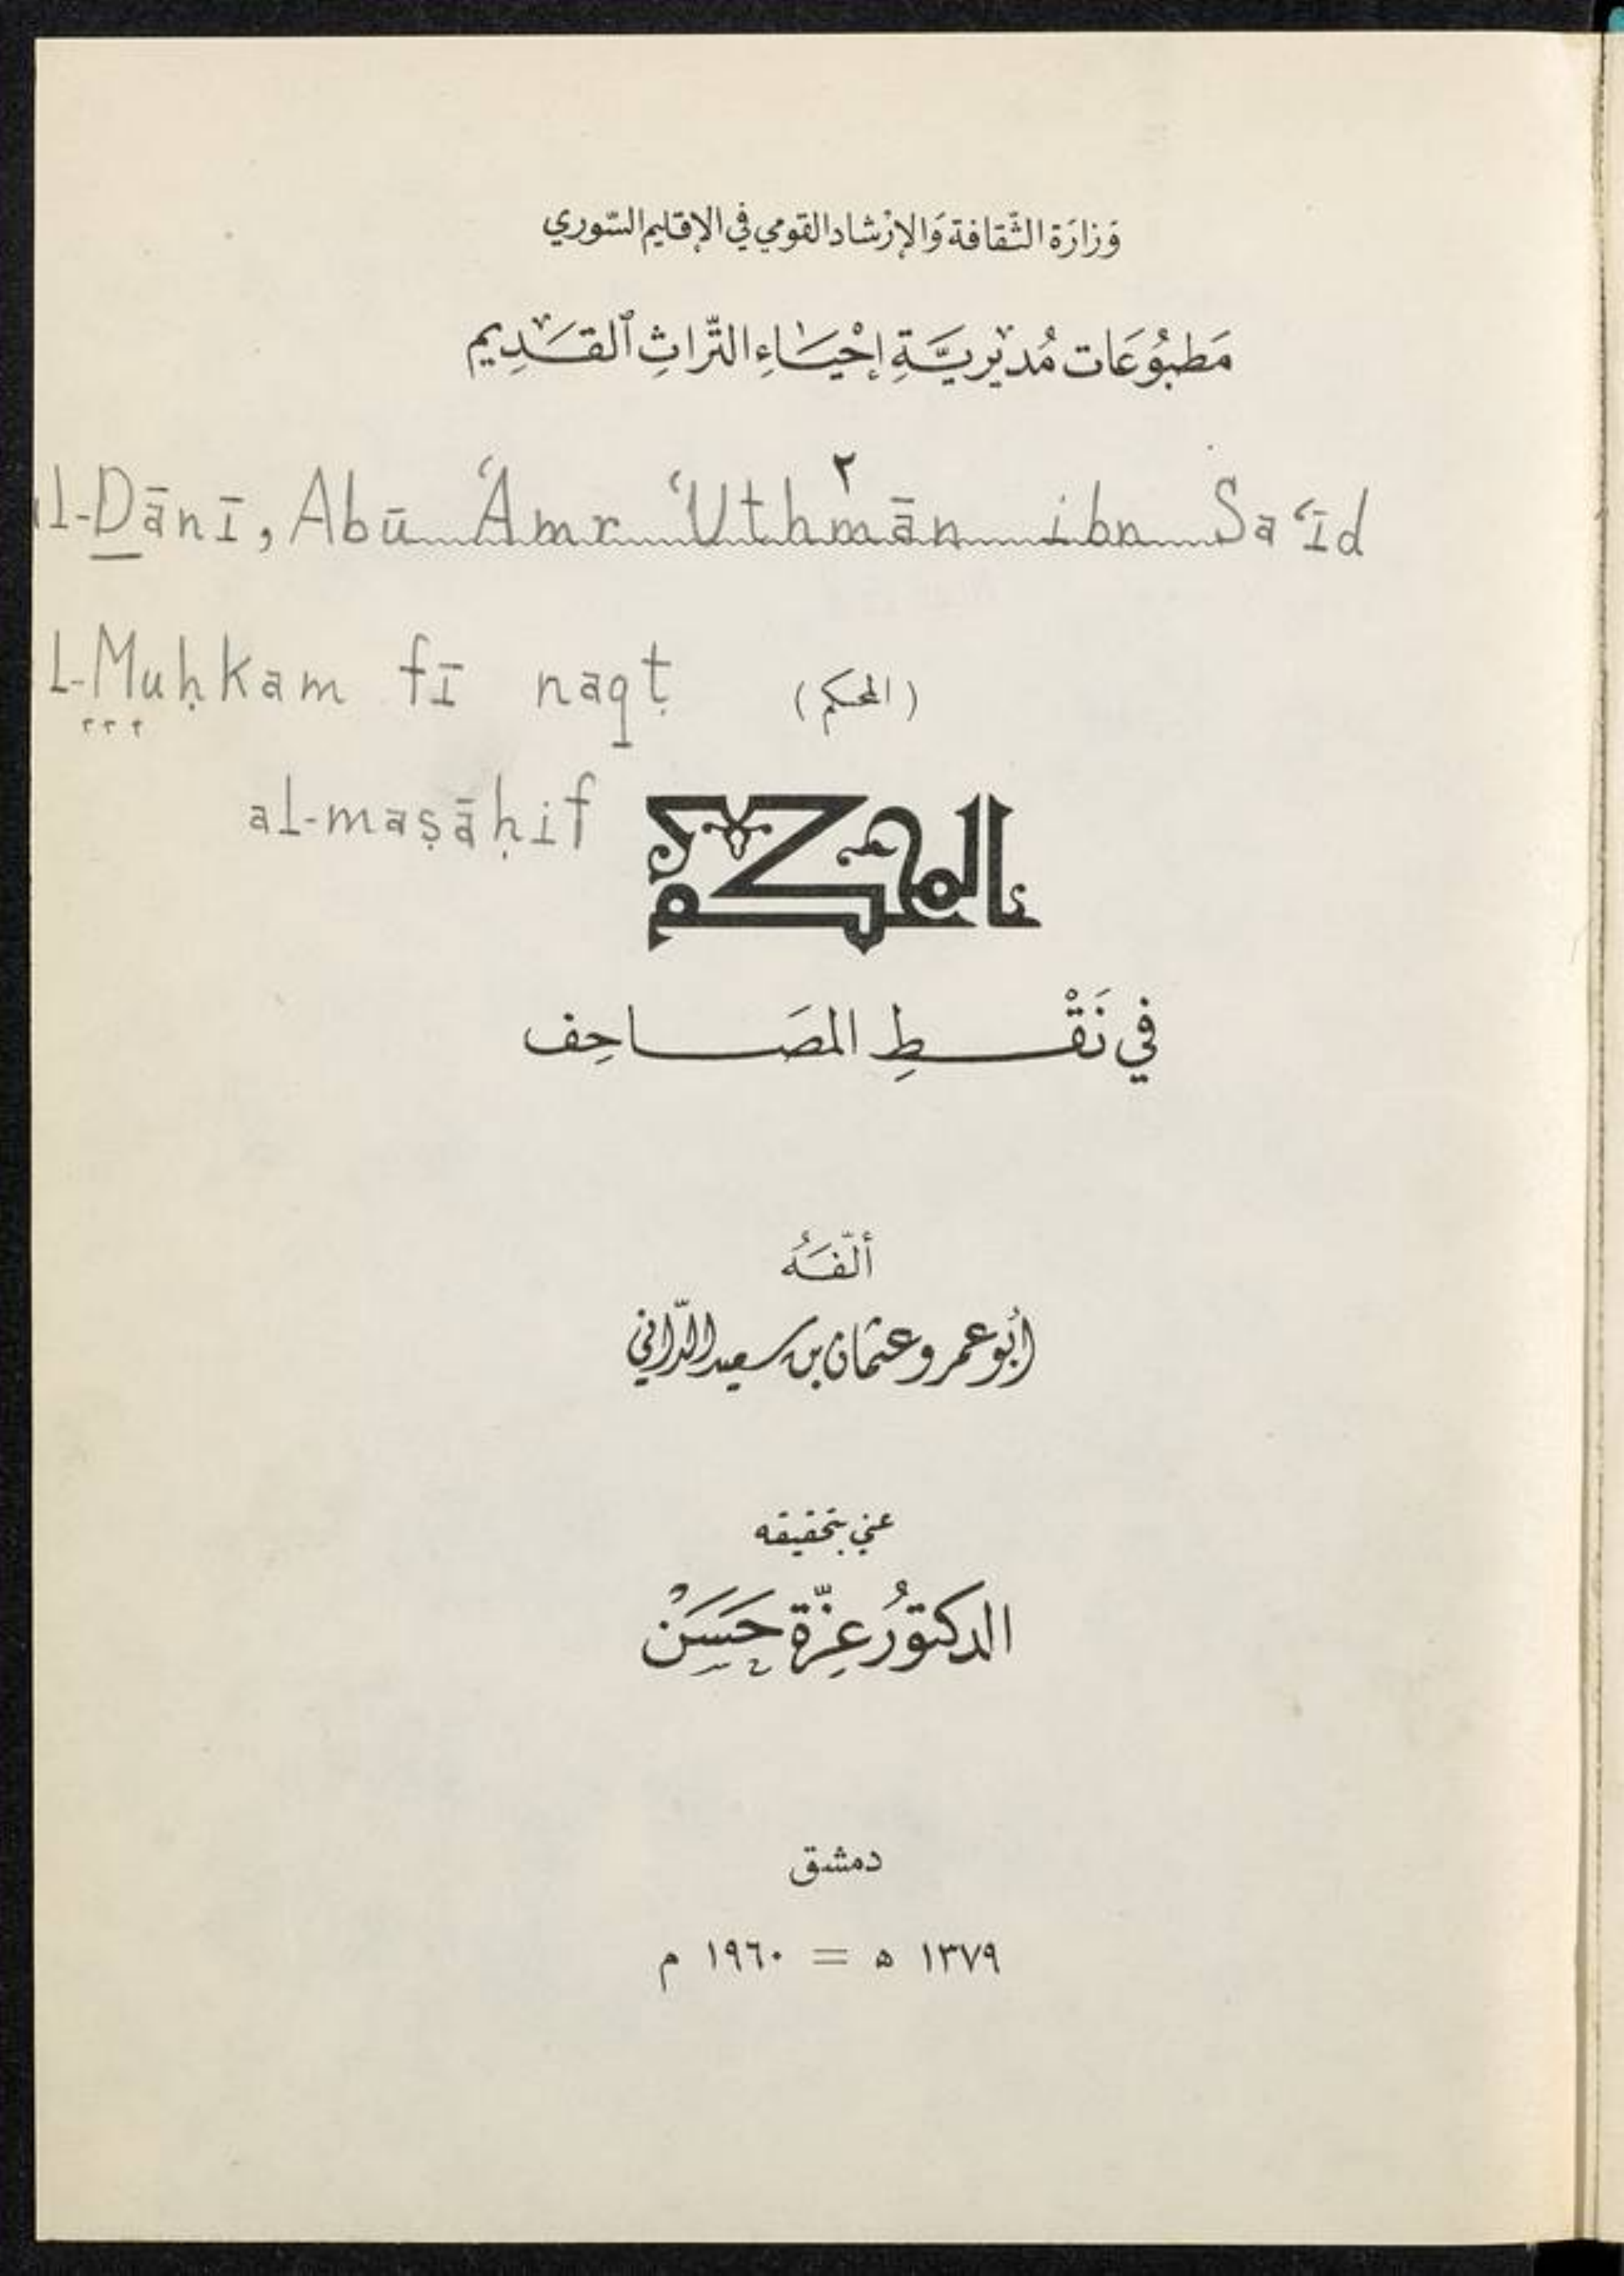 وَزارَة الثَّقافة وَالإرْشاد القومي في الإقليم السّوري
مَطبُوعَات مُديْريَّةِ إحْيَاءِ التّراثِ ٱلقَديِم
٢
al-Dānī, Abū ʿAmr ʿUthmān ibn Saʿīd
l-Muḥkam fī naqṭ
( المحكم )
al-maṣāḥif
المحكم
في نَقْطِ المصَاحِف
ألّفَهُ
أبُو عمرو عثمان بن سعيد الدّاني
عني بتحقيقه
الدكتوُر عِزّة حَسَنْ
دمشق
١٣٧٩ ه = ١٩٦٠ م